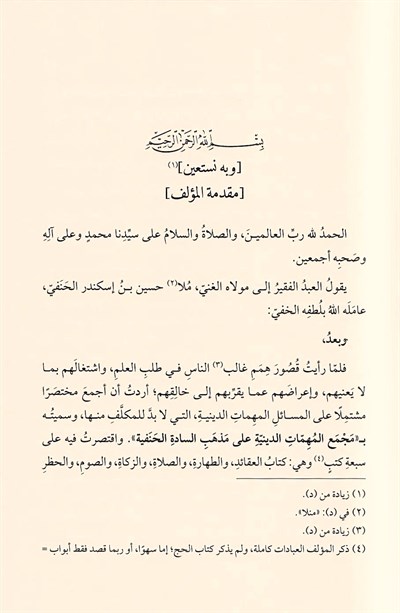 بِسْمِ اللهِ الرَّحْمَنِ الرَّحِيمِ
[وبه نستعين](١)
[مقدمة المؤلف]
الحمدُ لله ربِّ العالميـن، والصلاةُ والسلامُ على سيِّدِنا محمدٍ وعلى آلِهِ
وصَحبِه أجمعين.
يقولُ العبدُ الفقيرُ إلـى مولاه الغنيّ، مُلا(٢) حسين بـنُ إسكندر الحَنَفيّ،
عامَلَه اللهُ بلُطفِه الخفيّ:
وبعدُ،
فلمّا رأيتُ قُصُورَ هِمَمِ غالب(٣) الناسِ فـي طلبِ العلمِ، واشتغالَهم بمـا
لا يَعنيهم، وإعراضَهم عمـا يقرِّبهم إلـى خالِقِهم؛ أردتُ أن أجمعَ مختصَرًا
مشتمِلًا على المسـائلِ المهِماتِ الدينيـةِ، التـي لا بدَّ للمكلَّفِ منـها، وسميتُـه
بـ«مَجْمَع المُهِمّاتِ الدينيّةِ على مَذهَبِ السادةِ الحَنَفية». واقتصرتُ فيه على
سبعةِ كتبٍ(٤) وهي: كتابُ العقائدِ، والطهارةِ، والصلاةِ، والزكاةِ، والصومِ، والحظرِ
(١) زيادة من (د).
(٢) في (د): «منلا».
(٣) زيادة من (د).
(٤) ذكر المؤلف العبادات كاملة، ولم يذكر كتاب الحج؛ إما سهوًا، أو ربما قصد فقط أبواب =